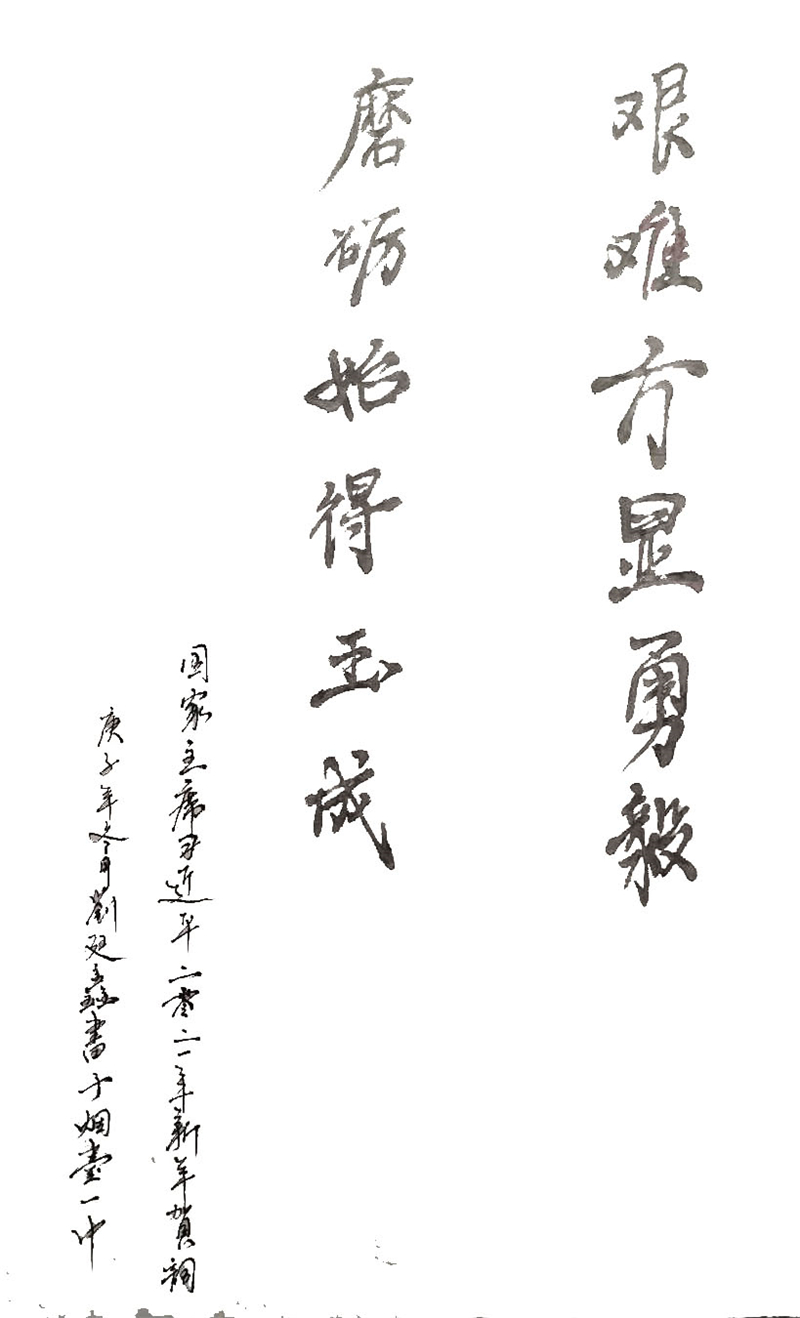 艰难方显勇毅
磨砺始得玉成
国家主席习近平二零二一年新年贺词
庚子年冬月劉廷鑫書于烟臺一中